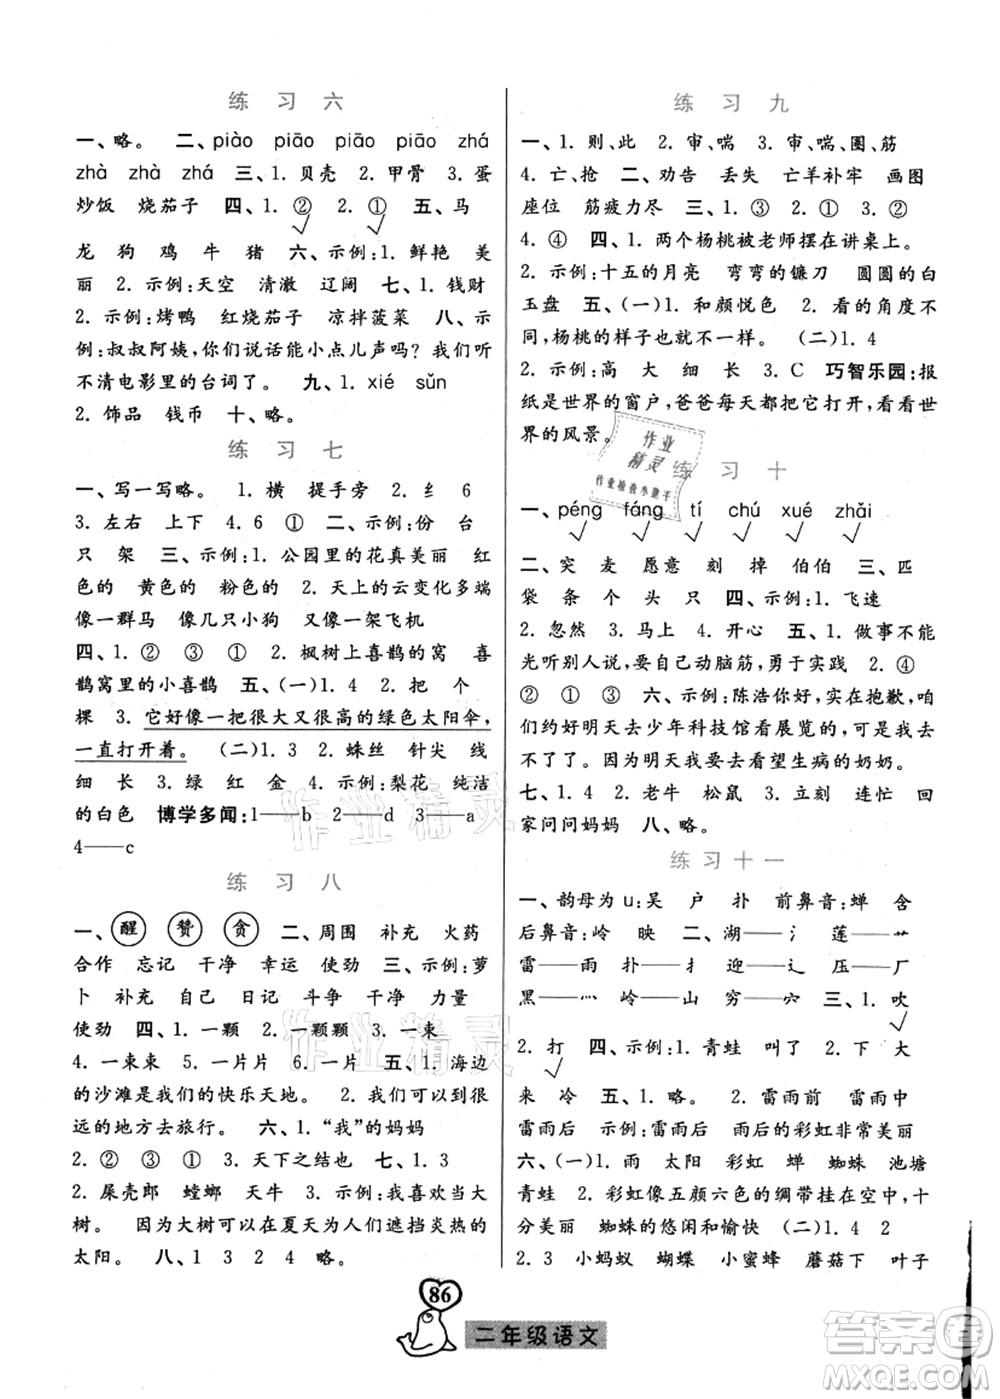 练 习 六
一、略。 二、piào piāo piāo piāo zhá
zhà zhà zhá 三、1. 贝壳 2. 甲骨 3. 蛋
炒饭 烧茄子 四、1. ② 2. ① 五、马
龙 狗 鸡 牛 猪 六、示例:1. 鲜艳 美
丽 2. 示例:天空 清澈 辽阔 七、1. 钱财
2. 示例:烤鸭 红烧茄子 凉拌菠菜 八、示
例:叔叔阿姨,你们说话能小点儿声吗? 我们听
不清电影里的台词了。 九、1. xié sǔn
2. 饰品 钱币 十、略。
练 习 七
一、写一写略。 1. 横 提手旁 2. 纟 6
3. 左右 上下 4. 6 ① 二、示例:份 台
只 架 三、示例:1. 公园里的花真美丽 红
色的 黄色的 粉色的 2. 天上的云变化多端
像一群马 像几只小狗 又像一架飞机
四、1. ② ③ ① 2. 枫树上喜鹊的窝 喜
鹊窝里的小喜鹊 五、(一)1. 4 2. 把 个
棵 3. 它好像一把很大又很高的绿色太阳伞,
一直打开着。 (二)1. 3 2. 蛛丝 针尖 线
细 长 3. 绿 红 金 4. 示例:梨花 纯洁
的白色 博学多闻:1——b 2——d 3——a
4——c
练 习 八
一、醒 赞 贪 二、周围 补充 火药
合作 忘记 干净 幸运 使劲 三、示例:萝
卜 补充 自己 日记 斗争 干净 力量
使劲 四、1. 一颗 2. 一颗颗 3. 一束
4. 一束束 5. 一片片 6. 一片 五、1. 海边
的沙滩是我们的快乐天地。 2. 我们经常到很
远的地方去旅行。 六、1. “我”的妈妈
2. ② ③ ① 3. 天下之结也 七、1. 3
2. 屎壳郎 螳螂 天牛 3. 示例:我喜欢当大
树。 因为大树可以在夏天为人们遮挡炎热的
太阳。 八、1 3 2 4 略。
练 习 九
一、1. 则、此 2. 审、喘 3. 审、喘、圈、筋
4. 亡、抢 二、劝告 丢失 亡羊补牢 画图
座位 筋疲力尽 三、1. ③ 2. ① 3. ②
4. ④ 四、1. 两个杨桃被老师摆在讲桌上。
2. 示例:十五的月亮 弯弯的镰刀 圆圆的白
玉盘 五、(一)1. 和颜悦色 2. 看的角度不
同,杨桃的样子也就不一样。 (二)1. 4
2. 示例:高 大 细 长 3. C 巧智乐园:报
纸是世界的窗户,爸爸每天都要打开,看看世
界的风景。
练 习 十
一、péng fáng tí chú xué zhāi
二、突 麦 愿意 刻 掉 伯伯 三、匹
袋 条 个 头 只 四、示例:1. 飞速
2. 忽然 3. 马上 4. 开心 五、1. 做事不能
光听别人说,要自己动脑筋,勇于实践 2. ④
② ① ③ 六、示例:陈浩你好,实在抱歉,咱
们约好明天去少年科技馆看展览的,可是我去
不了了。因为明天我要去看望生病的奶奶。
七、1. 4 2. 老牛 松鼠 3. 立刻 连忙 回
家问问妈妈 八、略。
练 习 十 一
一、韵母为 u:吴 户 扑 前鼻音:蝉 含
后鼻音:岭 映 二、湖——氵 莲——艹
雷——雨 扑——扌 迎——辶 压——厂
黑——灬 岭——山 穷——穴 三、1. 吹
2. 打 四、示例:1. 青蛙 叫了 2. 下 大
来 冷 五、1. 略。 2. 雷雨前 雷雨中
雷雨后 示例:雷雨后 雨后的彩虹非常美丽
六、(一)1. 雨 太阳 彩虹 蝉 蜘蛛 池塘
青蛙 2. 彩虹像五颜六色的绸带挂在空中,十
分美丽 蜘蛛的悠闲和愉快 (二)1. 4 2
2. 3 小蚂蚁 蝴蝶 小蜜蜂 蘑菇下 叶子
86
二年级语文
作业
精灵
作业检查小助手
作业精灵
作业精灵
答案卷
MXQE.COM